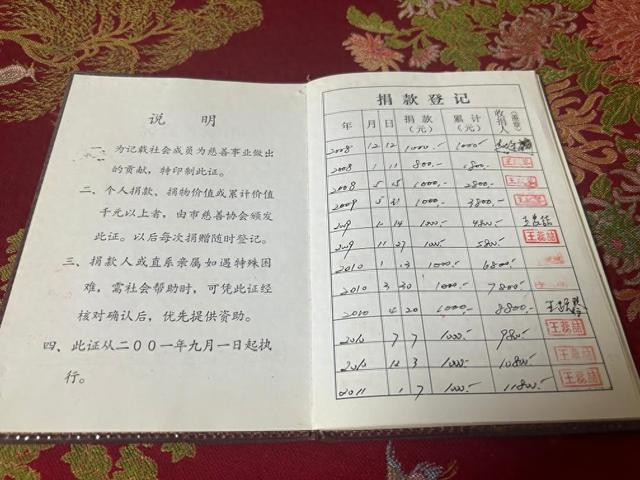 说 明
一、为记载社会成员为慈善事业做出
的贡献，特印制此证。
二、个人捐款、捐物价值或累计价值
千元以上者，由市慈善协会颁发
此证。以后每次捐赠随时登记。
三、捐款人或直系亲属如遇特殊困
难，需社会帮助时，可凭此证经
核对确认后，优先提供资助。
四、此证从二00一年九月一日起执
行。
捐款登记
年 月 日 捐款（元） 累计（元） 收捐人（盖章）
2008 12 12 1000.- 1000.-
2008 1 11 800.- 1800.-
2008 5 15 1000.- 2800.-
2009 5 21 1000.- 3800.-
2009 1 14 1000.- 4800.-
2009 11 27 1000.- 5800.-
2010 1 13 1000.- 6800.-
2010 3 30 1000.- 7800.-
2010 4 20 1000.- 8800.-
2010 7 7 1000.- 9800.-
2010 12 3 1000.- 10800.-
2011 1 7 1000.- 11800.-